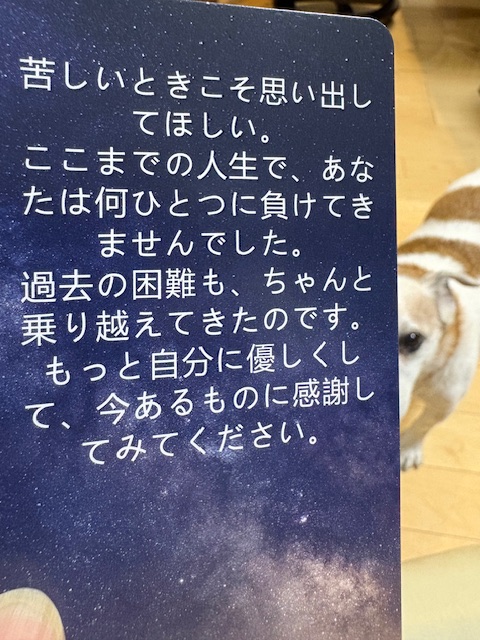 苦しいときこそ思い出し
てほしい。
ここまでの人生で、あな
たは何ひとつに負けてき
ませんでした。
過去の困難も、ちゃんと
乗り越えてきたのです。
もっと自分に優しくし
て、今あるものに感謝し
てみてください。